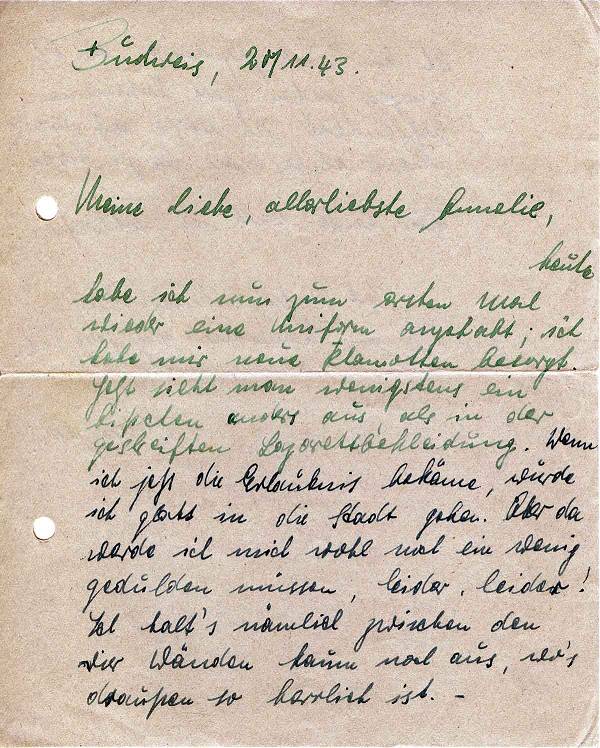 Budweis, 20/11.43.
Meine liebe, allerliebste Annelie,
heute
habe ich nun zum ersten Mal
wieder eine Uniform angehabt; ich
habe mir neue Klamotten besorgt.
Jetzt sieht man wenigstens ein
bißchen anders aus, als in der
gestreiften Lazarettbekleidung. Wenn
ich jetzt die Erlaubnis bekäme, würde
ich glatt in die Stadt gehen. Aber da
werde ich mich wohl noch ein wenig
gedulden müssen, leider, leider!
Ich halt's nämlich zwischen den
vier Wänden kaum noch aus, wo's
draußen so herrlich ist. –